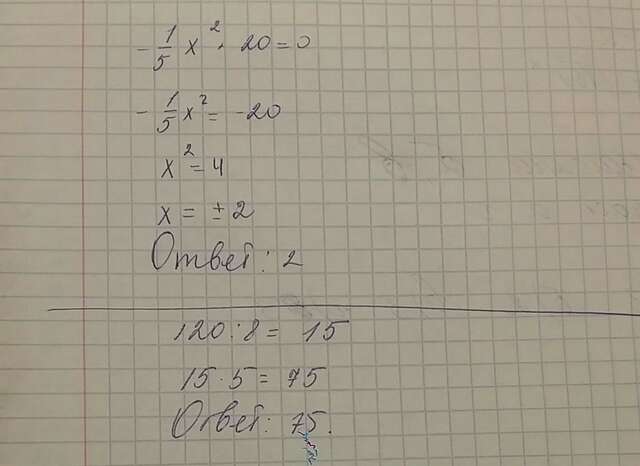 - 1/5 x² · 20 = 0
- 1/5 x² = -20
x² = 4
x = ± 2
Ответ: 2
120 : 8 = 15
15 · 5 = 75
Ответ: 75.